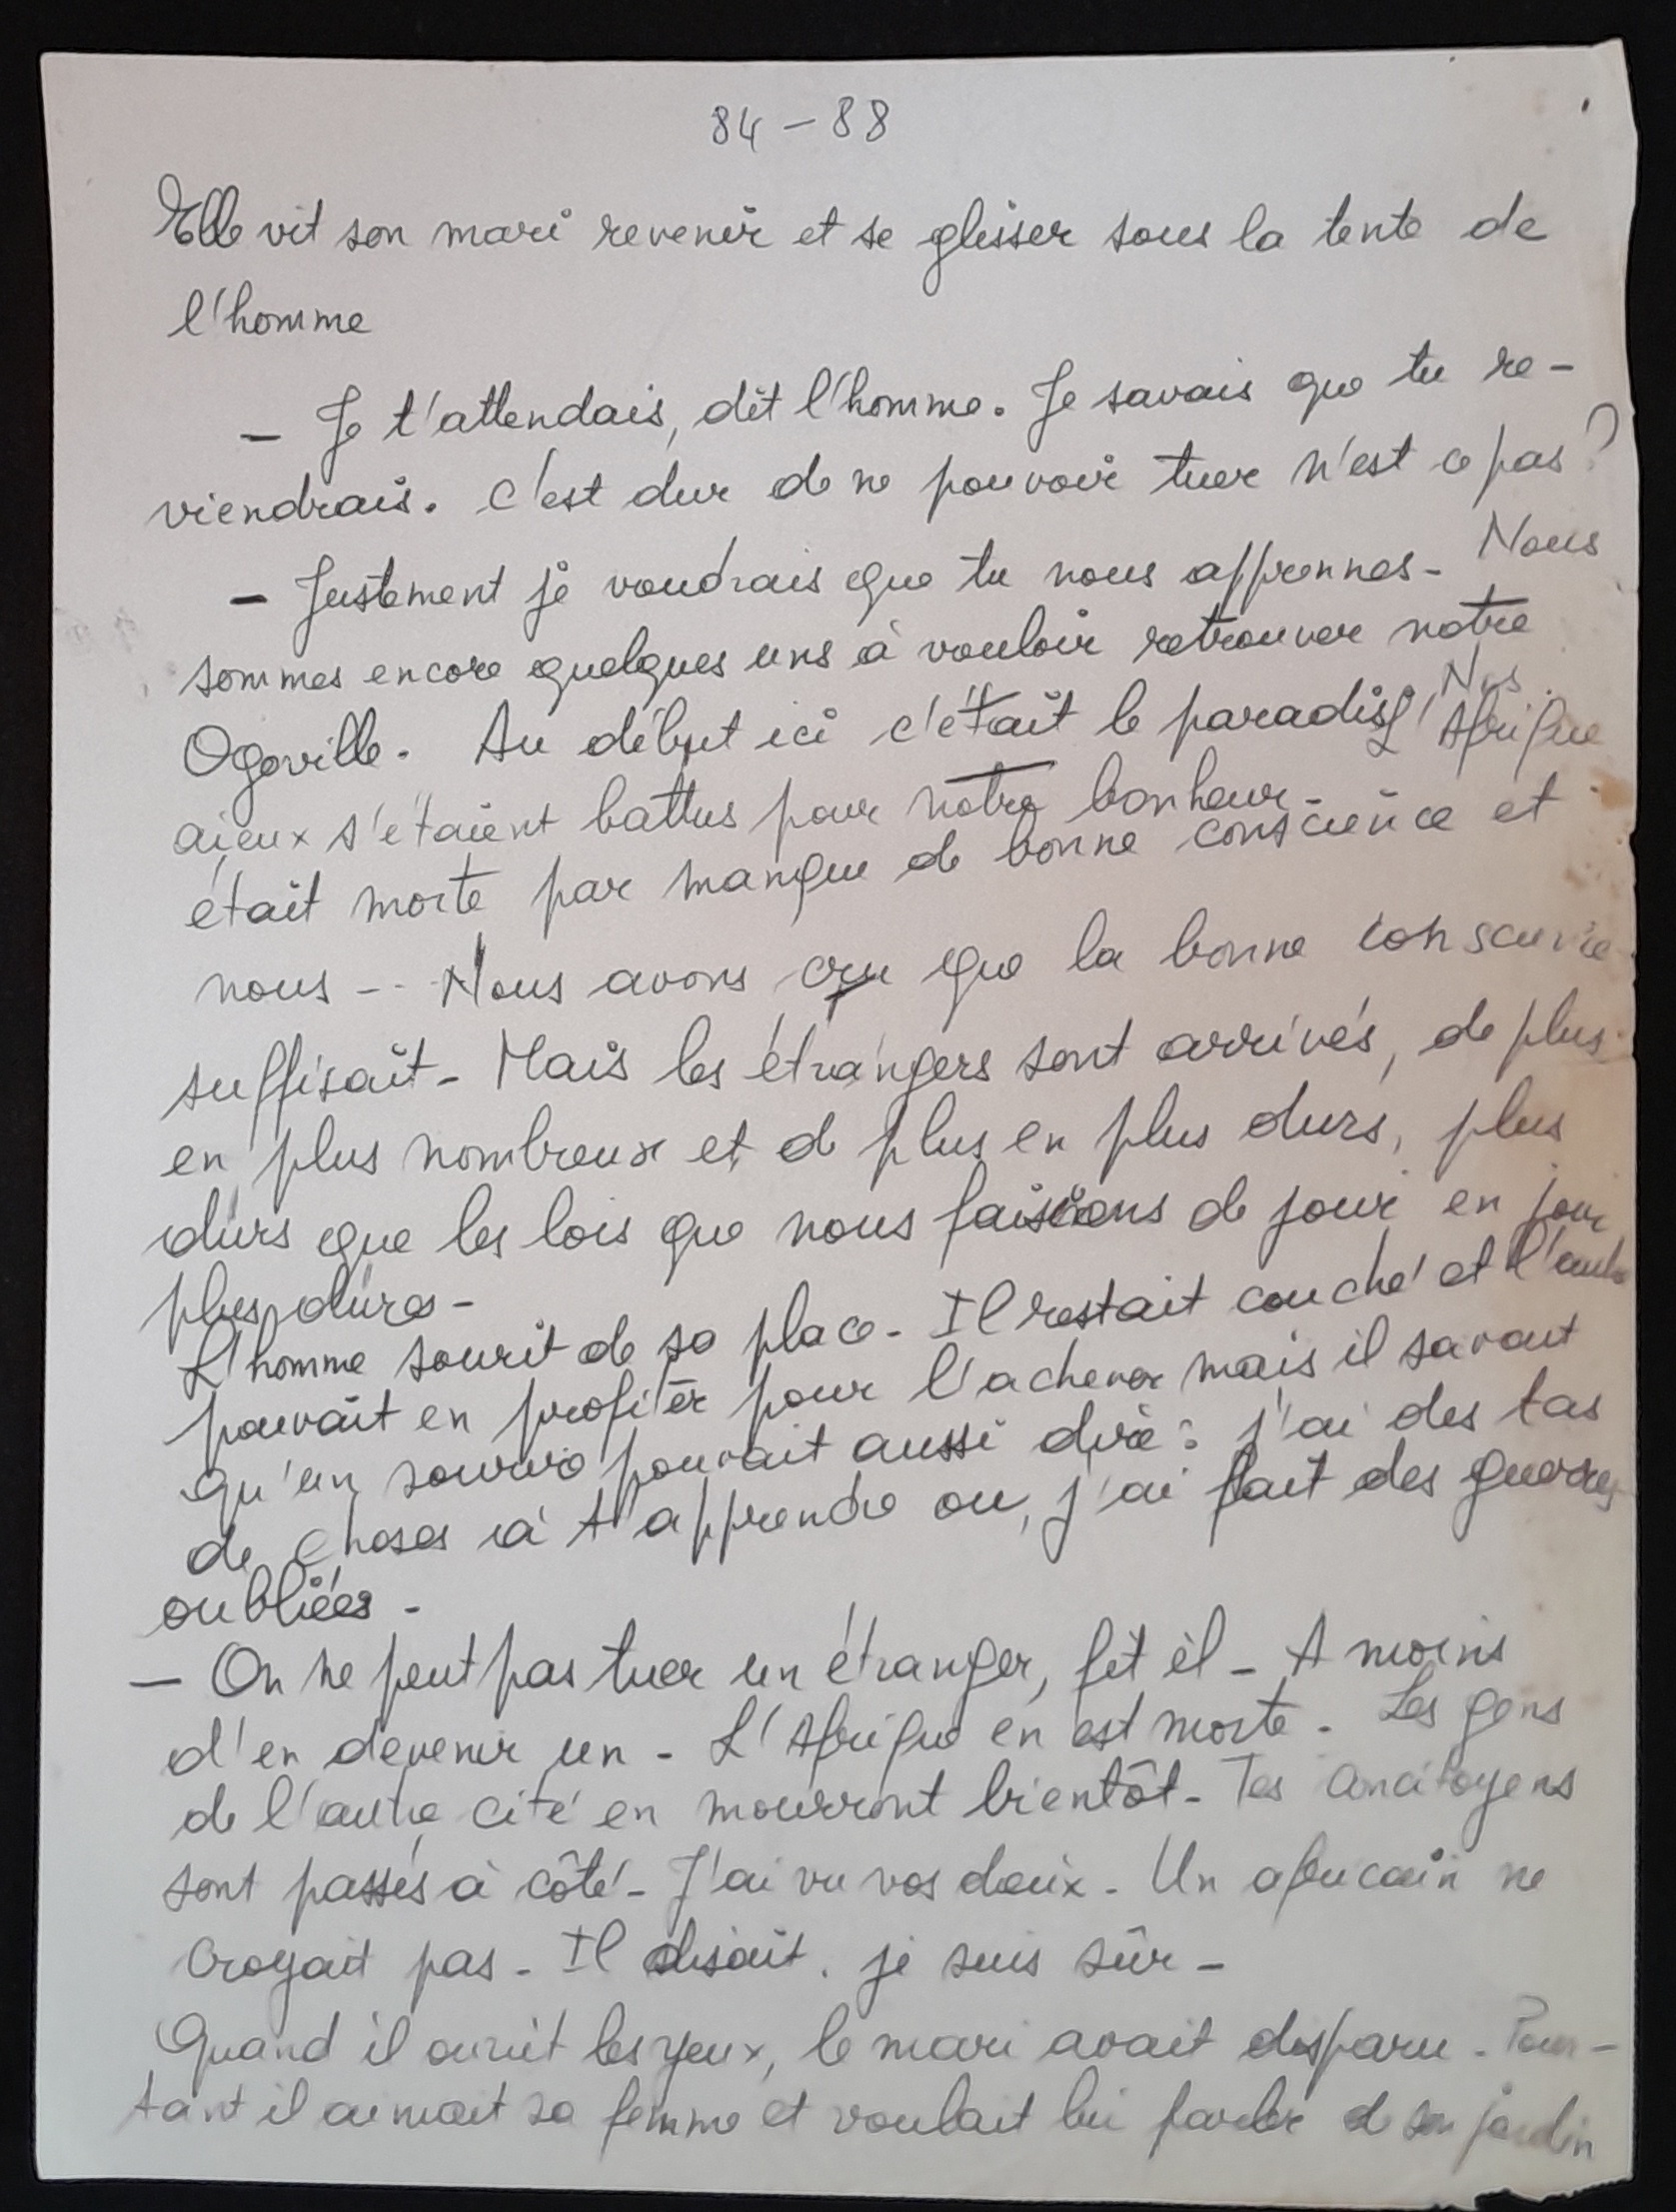 84 - 88
Elle vit son mari revenir et se glisser sous la tente de
l'homme
- Je t'attendais, dit l'homme. Je savais que tu re-
viendrais. C'est dur de ne pouvoir tuer n'est ce pas ?
- Justement je voudrais que tu nous apprennes - Nous
sommes encore quelques uns à vouloir retrouver notre
Ogoville. Au début ici c'était le paradis. Nos
aïeux s'étaient battus pour notre bonheur - L'Afrique
était morte par manque de bonne conscience et
nous -- Nous avons cru que la bonne conscience
suffisait - Mais les étrangers sont arrivés, de plus
en plus nombreux et de plus en plus durs, plus
durs que les lois que nous faisions de jour en jour
plus dures -
L'homme sourit de sa place - Il restait couché et l'autre
pouvait en profiter pour l'achever mais il savait
qu'un sourire pouvait aussi dire : j'ai des tas
de choses à t'apprendre ou, j'ai fait des guerres
oubliées -
- On ne peut pas tuer un étranger, fit il - A moins
d'en devenir un - L'Afrique en est morte - Les gens
de l'autre cité en mourront bientôt - Tes concitoyens
sont passés à côté - J'ai vu vos deux - Un africain ne
croyait pas - Il disait. je suis sûr -
Quand il ouvrit les yeux, le mari avait disparu - Pour-
tant il aimait sa femme et voulait lui parler de son jardin